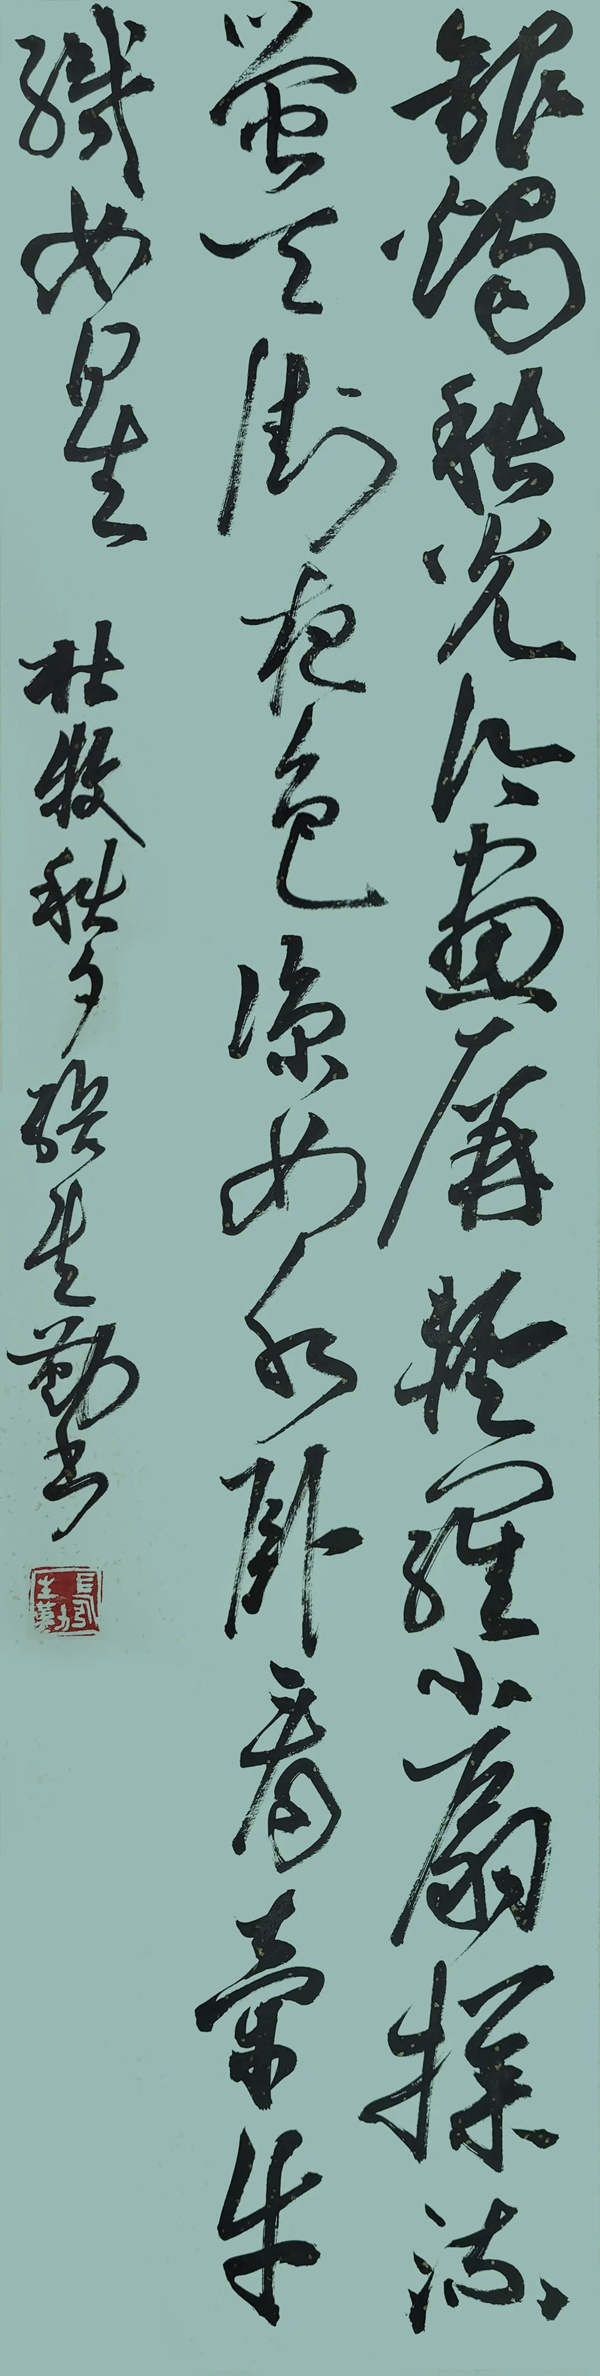 銀燭秋光冷畫屏輕羅小扇撲流
螢天街夜色涼如水臥看牽牛
織女星 杜牧秋夕 張生勤书